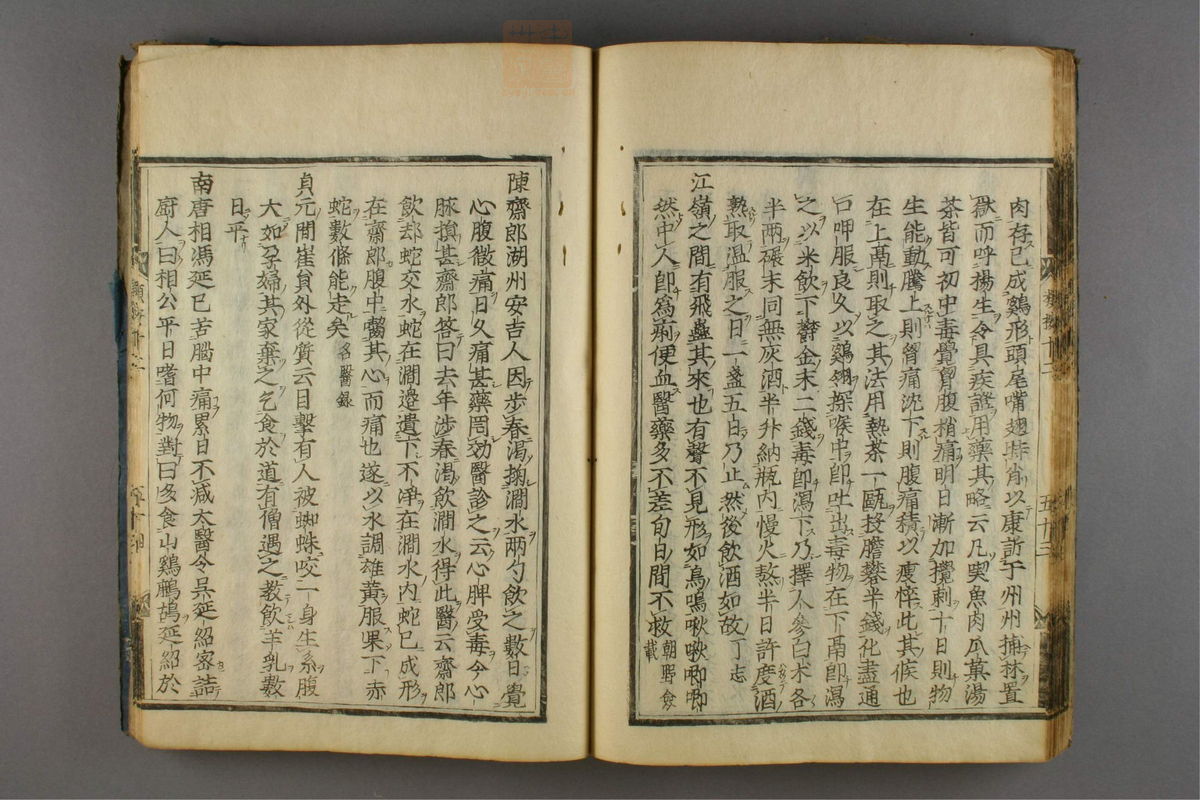 肉存已成鷄形頭尾嘴翅皆肖以康訢于州州捕林置
獄而呼楊生令具疾證用藥其略云凡喫魚肉瓜菓湯
茶皆可初中毒覺胷腹稍痛明日漸加攪刺十日則物
生能動騰上則胷痛沈下則腹痛積以瘦悴此其候也
在上鬲則取之其法用熱茶一甌投膽礬半錢化盡通
口呷服良久以鷄翎探喉中卽吐出毒物在下鬲卽瀉
之以米飮下鬱金末二錢毒卽瀉下乃擇人參白朮各
半兩碾末同無灰酒半升納瓶內慢火熬半日許度酒
熟取溫服之日一盞五日乃止然後飮酒如故 丁志
江嶺之間有飛蠱其來也有聲不見形如鳥鳴啾啾唧唧
然中人卽爲痢便血醫藥多不差旬日間不救 朝野僉載
五十三
陳齋郎湖州安吉人因步春渴掬澗水兩勺飮之數日覺
心腹微痛日久痛甚藥罔効醫診之云心脾受毒今心
脉損甚齋郎答曰去年涉春渴飮澗水得此醫云齋郎
飮却蛇交水蛇在澗邊遺下不淨在澗水內蛇已成形
在齋郎腹中嚙其心而痛也遂以水調雄黃服果下赤
蛇數條能走矣 名醫錄
貞元間崔員外從質云目擊有人被蜘蛛咬一身生糸腹
大如孕婦其家棄之乞食於道有僧遇之教飮羊乳數
日平
南唐相馮延巳苦腦中痛累日不減太醫令吳延紹密詰
厨人曰相公平日嗜何物對曰多食山鷄鷓鴣延紹於